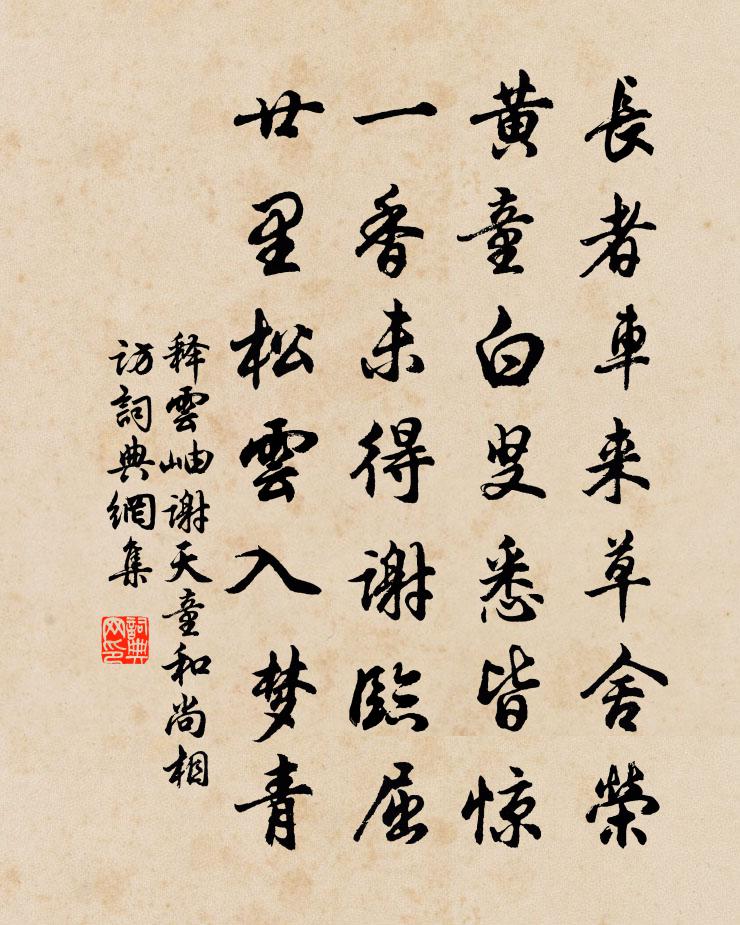 長者車来草舍榮
黄童白叟悉皆惊
一香未得謝臨屈
廿里松雲入梦青
释雲岫谢天童和尚相
訪詞典網集
詞典
网印